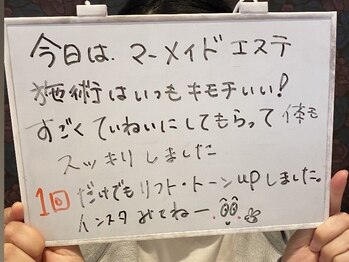 今日は、マーメイドエステ
施術はいつもキモチいい!
すごくていねいにしてもらって体も
スッキリしました
1回だけでもリフト・トーンupしました。
インスタみてねー